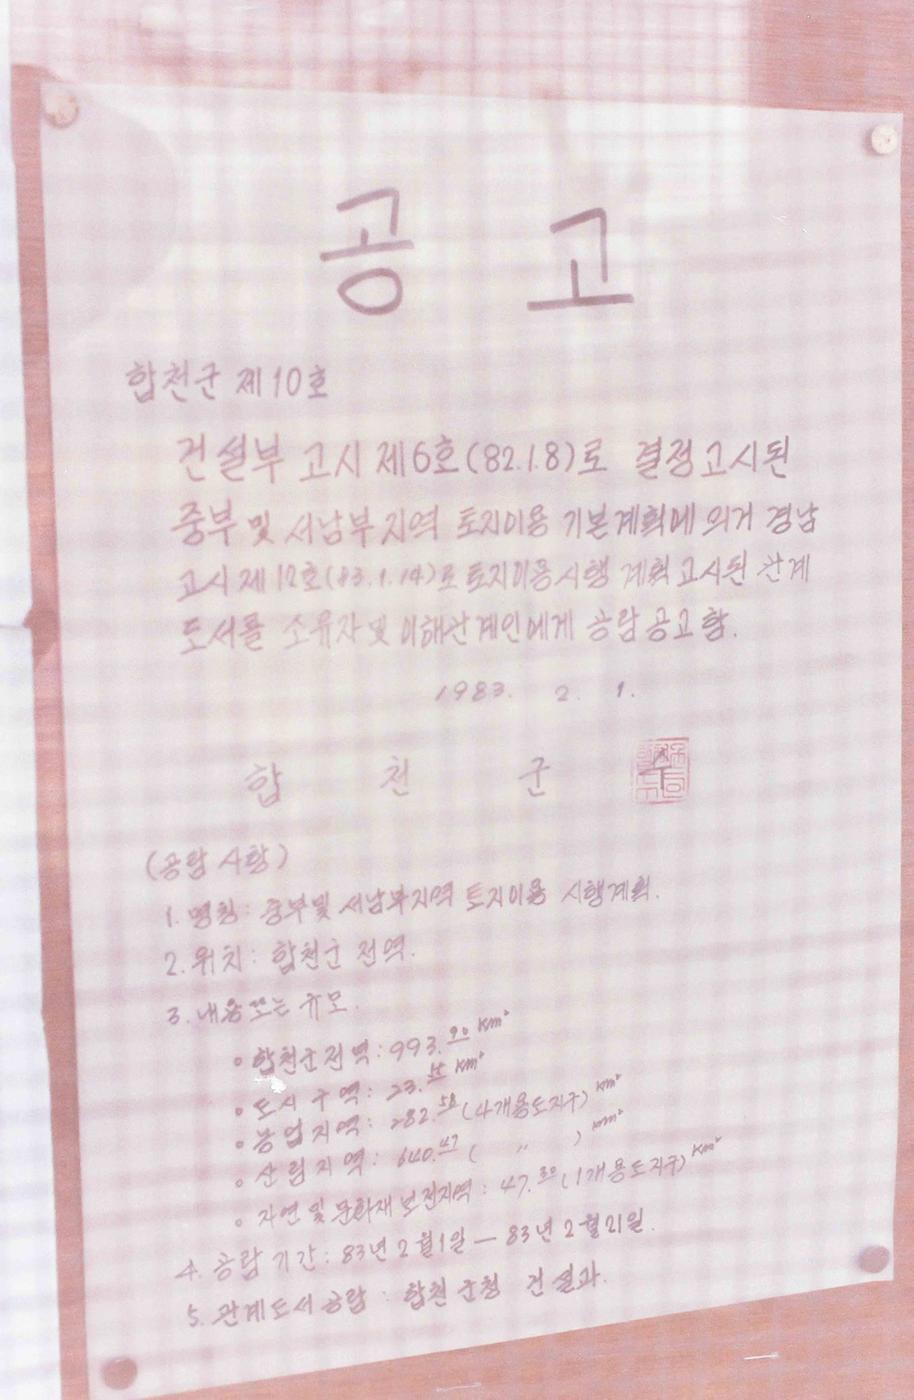 공 고
합천군 제10호
건설부 고시 제6호(82.1.8)로 결정고시된
중부 및 서남부지역 토지이용 기본계획에 의거 경남
고시 제12호(83.1.14)로 토지이용시행 계획 고시된 관계
도서를 소유자 및 이해관계인에게 공람 공고함.
1983. 2. 1.
합 천 군
(공람사항)
1. 명칭: 중부및 서남부지역 토지이용 시행계획.
2. 위치: 합천군 전역.
3. 내용또는 규모.
◦ 합천군전역: 993.90 km²
◦ 도시구역: 23. km²
◦ 농업지역: 282.58 (4개용도지구) km²
◦ 산림지역: 640.47 ( 〃 ) km²
◦ 자연 및 문화재 보전지역: 47.30 (1개용도지구) km²
4. 공람기간: 83년 2월1일 — 83년 2월21일.
5. 관계도서공람: 합천군청 건설과.